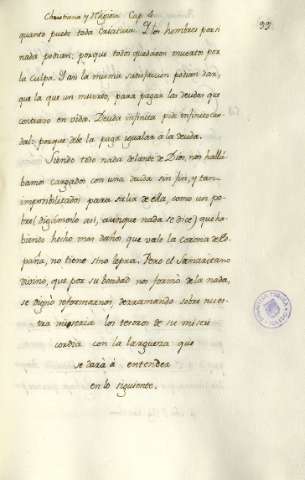 Christiana y Religiosa Cap. 4.
33
quanto puede toda creatura. Los hombres por si
nada podian; porque todos quedaron muertos por
la culpa. Dan la misma satisfaccion podian dar,
que la que un muerto, para pagar las deudas que
contraxo en vida. Deuda infinita pide infinito cau-
dal: porque debe la paga igualar a la deuda.
Siendo todo nada delante de Dios, nos hallá-
bamos cargados con una deuda sin fin, y tan
imposibilitados para salir de ella, como un po-
bre (digamoslo asi, aunque nada se dice) que ha-
biendo hecho mas daños, que vale la corona de Es-
paña, no tiene sino lepra. Pero el Samaritano
divino, que por su bondad nos formó de la nada,
se dignó reformarnos, derramando sobre nues-
tra miseria los tesoros de su miseri-
cordia con la largueza que
se dará á entender
en lo siguiente.